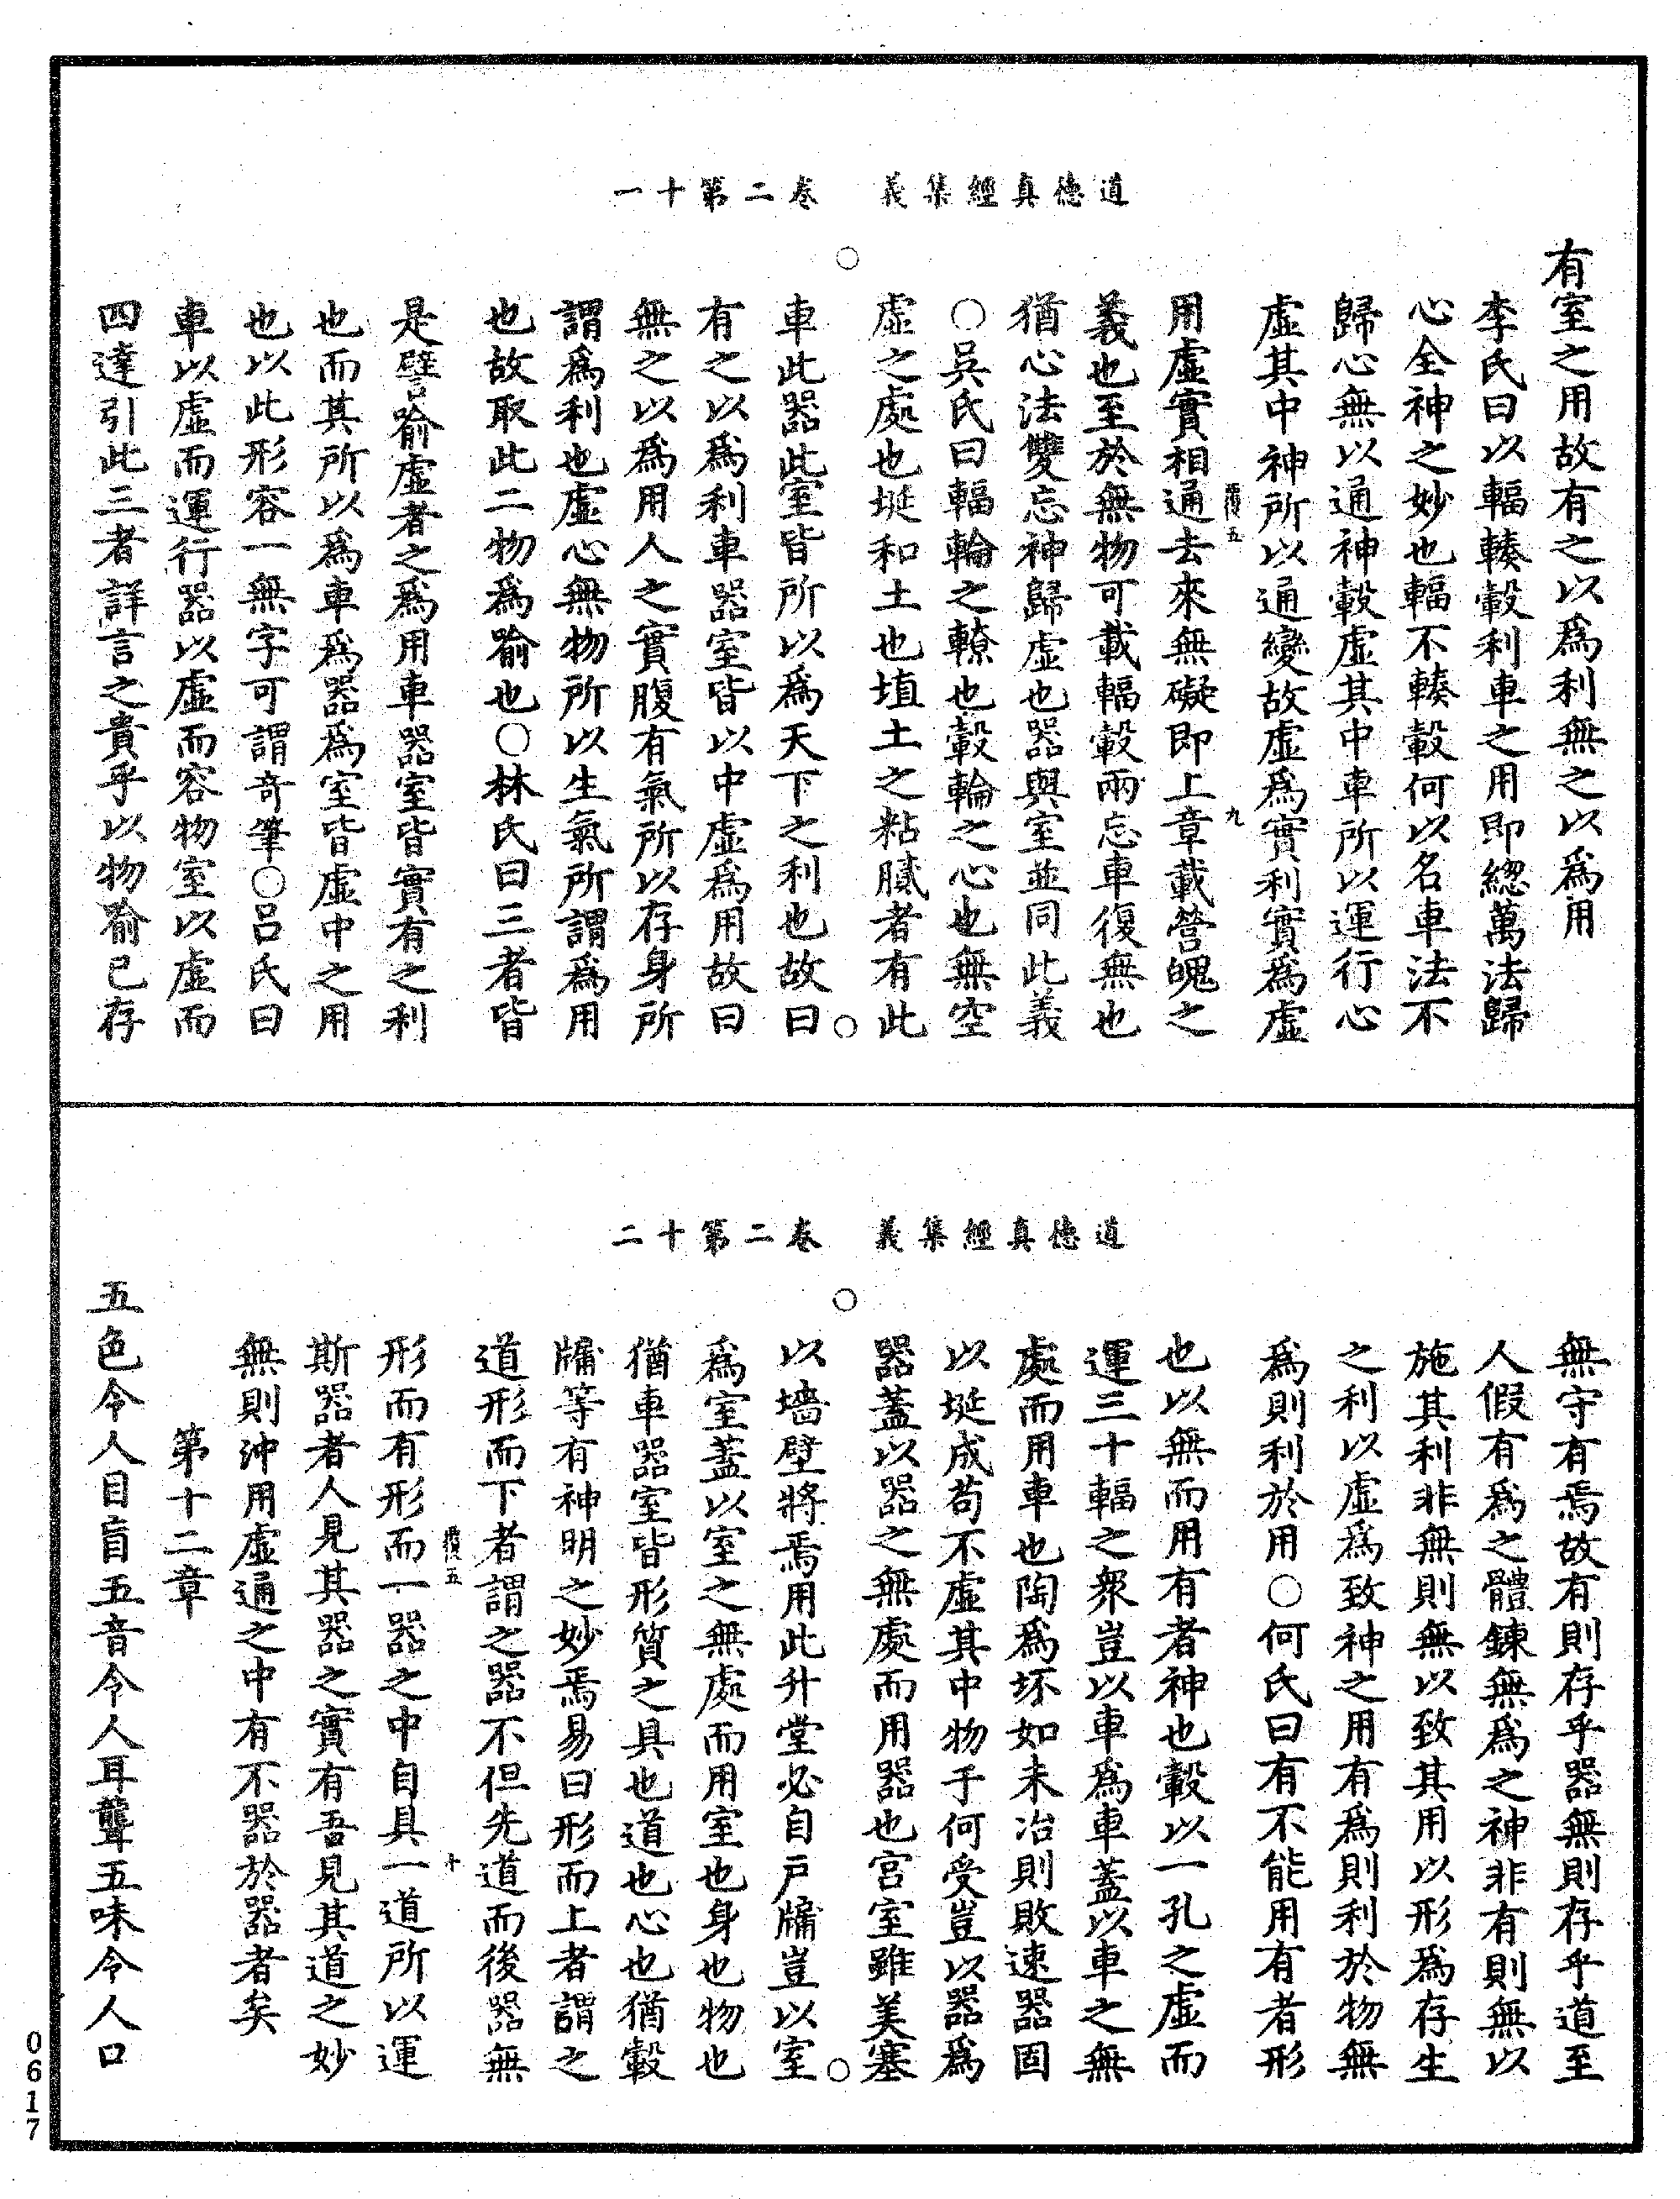 道德真經集義　卷二第十一
有室之用故有之以爲利無之以爲用
李氏曰以輻輳轂利車之用即緫萬法歸
心全神之妙也輻不輳轂何以名車法不
歸心無以通神轂虛其中車所以運行心
虛其中神所以通變故虛爲實利實爲虛
用虛實相通去來無礙即上章載營魄之
義也至於無物可載輻轂兩忘車復無也
猶心法雙忘神歸虛也器與室並同此義
○吳氏曰輻輪之轑也轂輪之心也無空
虛之處也埏和土也埴土之粘膩者有此
車此器此室皆所以爲天下之利也故曰
有之以爲利車器室皆以中虛爲用故曰
無之以爲用人之實腹有氣所以存身所
謂爲利也虛心無物所以生氣所謂爲用
也故取此二物爲喻也○林氏曰三者皆
是譬喻虛者之爲用車器室皆實有之利
也而其所以爲車爲器爲室皆虛中之用
也以此形容一無字可謂奇筆○呂氏曰
車以虛而運行器以虛而容物室以虛而
四達引此三者詳言之貴乎以物喻已存
道德真經集義　卷二第十二
無守有焉故有則存乎器無則存乎道至
人假有爲之體鍊無爲之神非有則無以
施其利非無則無以致其用以形爲存生
之利以虛爲致神之用有爲則利於物無
爲則利於用○何氏曰有不能用有者形
也以無而用有者神也轂以一孔之虛而
運三十輻之衆豈以車爲車蓋以車之無
處而用車也陶爲坏如未冶則敗速器固
以埏成苟不虛其中物于何受豈以器爲
器蓋以器之無處而用器也宮室雖美塞
以墻壁將焉用此升堂必自戶牖豈以室
爲室蓋以室之無處而用室也身也物也
猶車器室皆形質之具也道也心也猶轂
牖等有神明之妙焉易曰形而上者謂之
道形而下者謂之器不但先道而後器無
形而有形而一器之中自具一道所以運
斯器者人見其器之實有吾見其道之妙
無則沖用虛通之中有不器於器者矣
第十二章
五色令人目盲五音令人耳聾五味令人口
0617